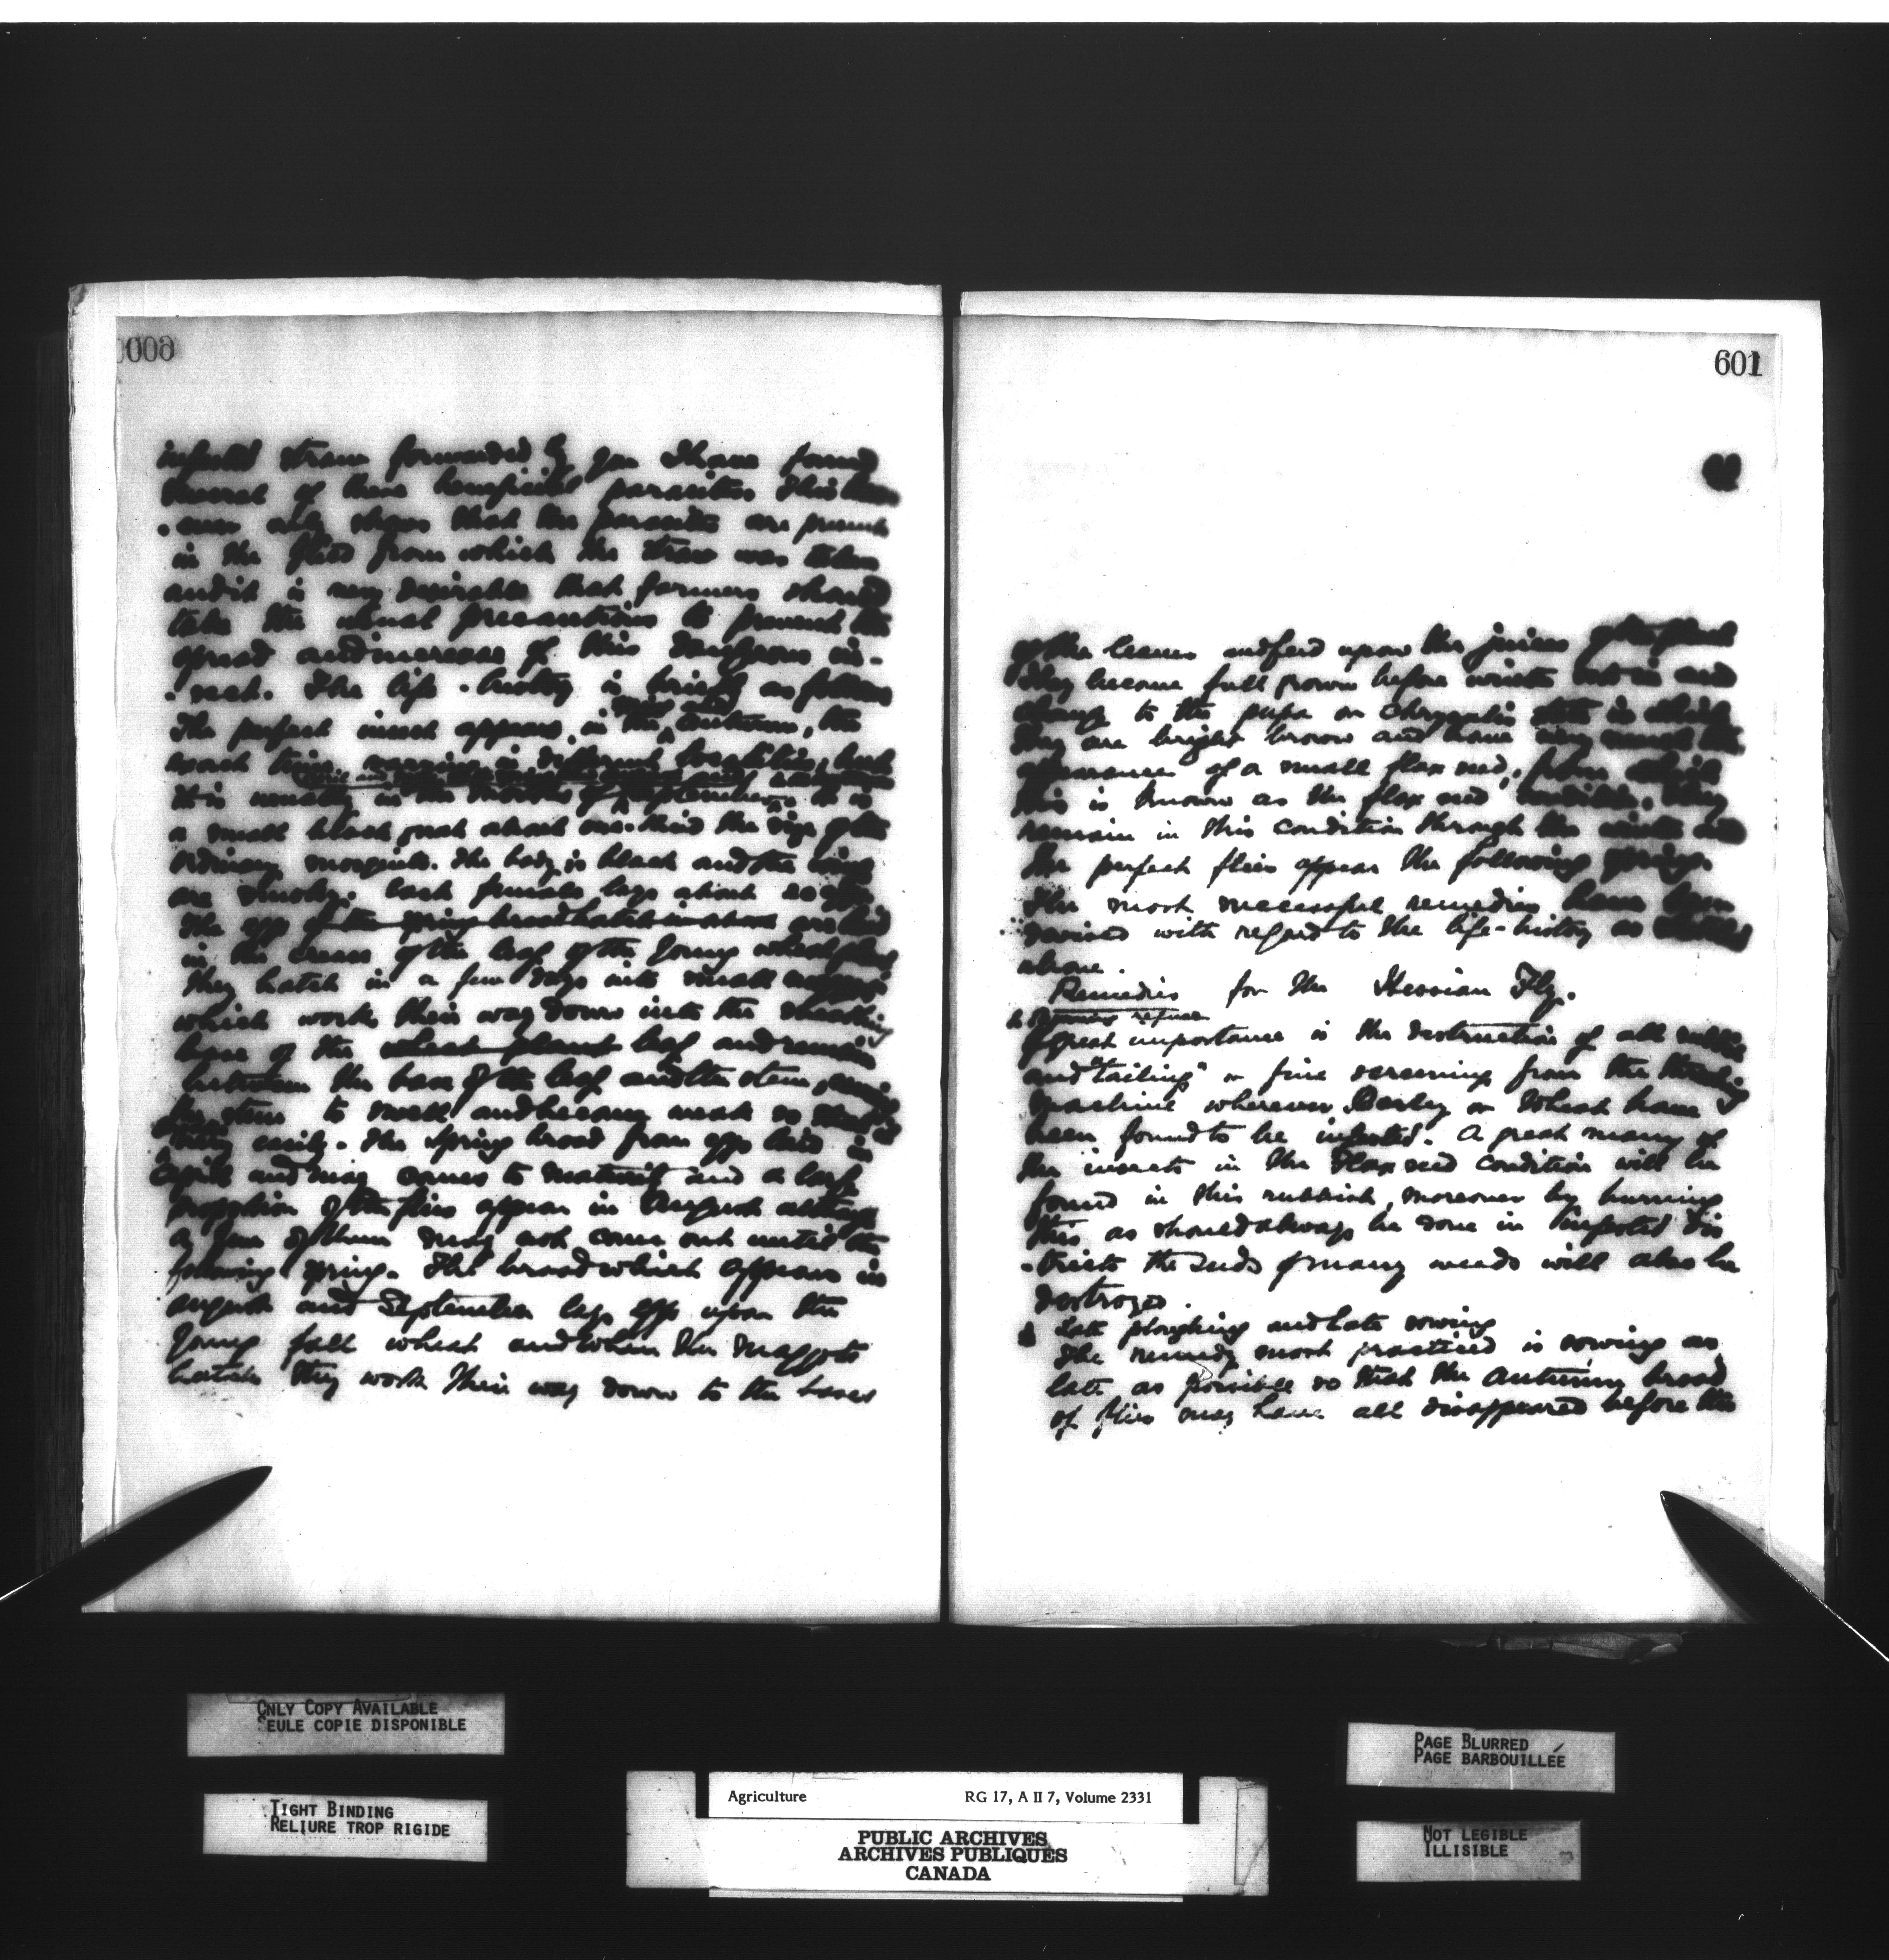 600
infested straw forwarded by you I have found
several of these beneficial parasites This
only shows that the parasites are present
in the field from which the straw was taken
and it is very desirable that farmers should
take the usual precautions to prevent the
spread and increase of this dangerous in-
-sect. The life-history is briefly as follows
The perfect insect appears in the autumn, the
exact time varying in different localities, but
it is usually in the months of September. It is
a small black gnat about one-third the size of the
ordinary mosquito. The body is black and the wings
are smoky. Each female lays about 20 eggs
The eggs of the spring brood hatch in about are laid
in the crease of the leaf of the young wheat plant
They hatch in a few days into small maggots
which work their way down into the sheathing
base of the wheat plant leaf and remain
between the base of the leaf and the stem, causing
the stem to swell and become weak so that it
easily. The Spring brood from eggs laid in
April and may comes to maturity and a large
proportion of the flies appear in August although
a few of them may not come out until the
following spring. The brood which appears in
august and September lays eggs upon the
young fall wheat and when the maggots
hatch they work their way down to the bases
601
of the leaves and feed upon the juices of the plant
They become full grown before winter sets in and
change to the pupa or chrysalis state in which
they are bright brown and have very much the
appearance of a small flax seed, from which
this is known as the flax seed condition. They
remain in this condition through the winter and
the perfect flies appear the following spring.
The most successful remedies have been
devised with regard to the life-history as
above.
Remedies for the Hessian Fly.
refuse
Of great importance is the destruction of all rubbish
and "tailings" or fine screenings from the threshing
machine wherever Barley or Wheat have
been found to be infested. A great many of
the insects in the Flax seed condition will be
found in this rubbish, moreover by burning
this as should always be done in infested dis
-tricts the seeds of many weeds will also be
destroyed.
Late ploughing and late sowing
The remedy most practiced is sowing as
late as possible so that the Autumn brood
of flies may have all disappeared before the
ONLY COPY AVAILABLE
SEULE COPIE DISPONIBLE
TIGHT BINDING
RELIURE TROP RIGIDE
PAGE BLURRED
PAGE BARBOUILLÉE
NOT LEGIBLE
ILLISIBLE
Agriculture RG 17, A II 7, Volume 2331
PUBLIC ARCHIVES
ARCHIVES PUBLIQUES
CANADA